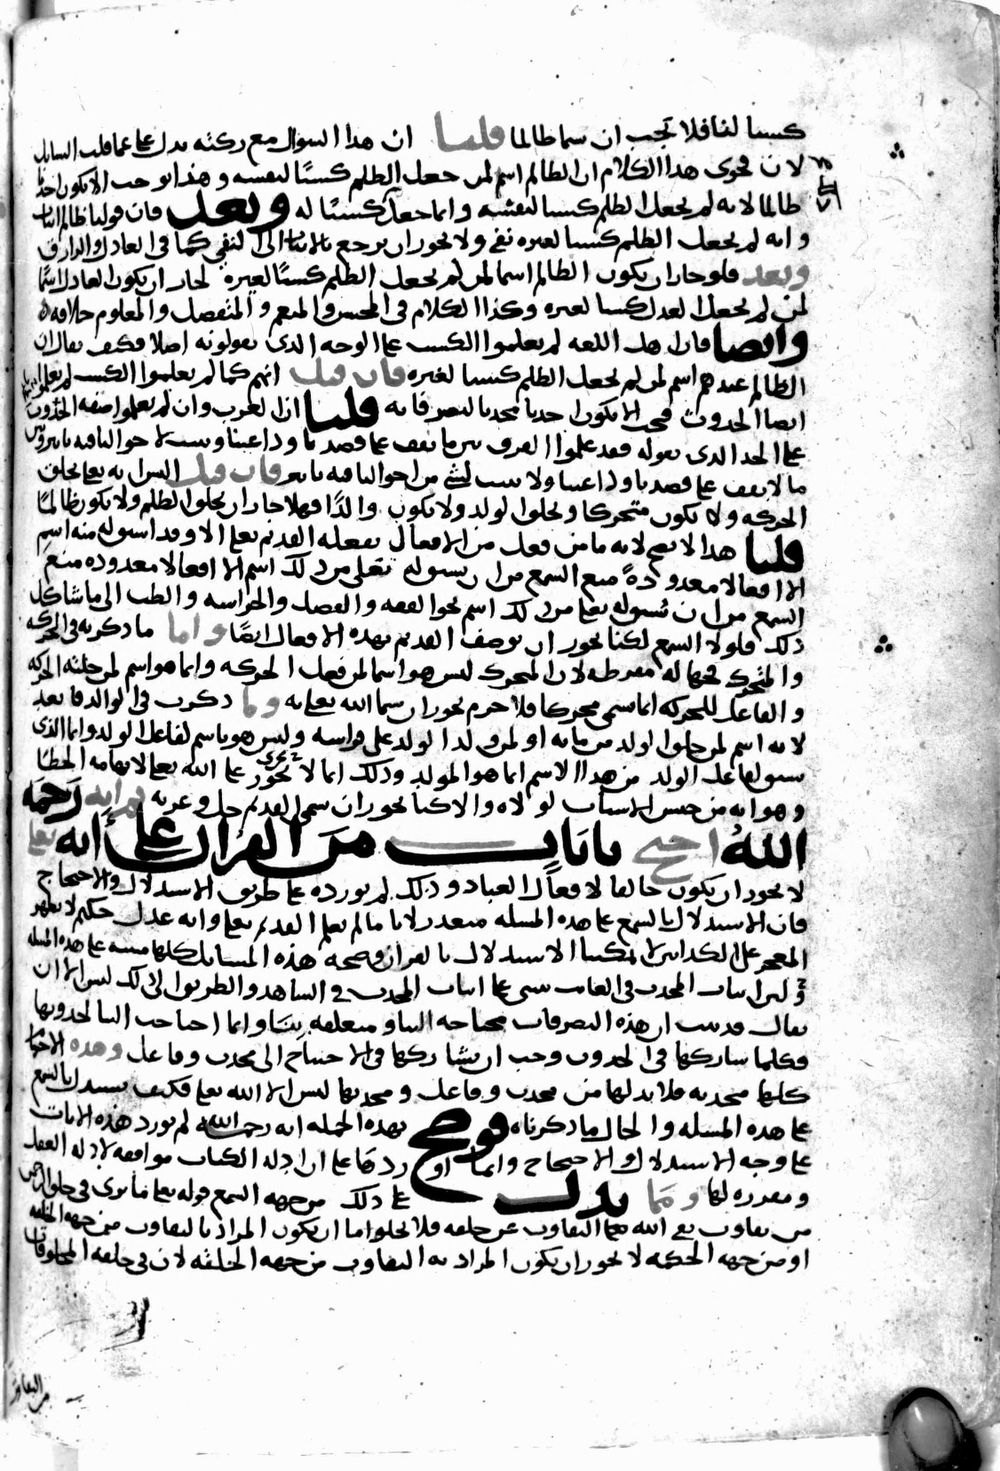 كسبا لنا فلا يجب ان يسما ظالما قلنا ان هذا السوال مع ركته يدل على عما قلب السايل
لان فحوى هذا الكلام ان الظالم اسم لمن جعل الظلم كسبًا لنفسه وهذا يوجب الا يكون احدنا
ظالما لانه لم يجعل الظلم كسبا لنفسه وانما جعل كسبًا له وبعد فان قولنا ظالم اثبات
وانه لم يجعل الظلم كسبا لغيره نفي ولا يجوز ان يرجع بالاثبات الى النفي كما في العادل والرازق
وبعد فلو جاز ان يكون الظالم اسما لمن لم يجعل الظلم كسبًا لغيره لجاز ان يكون العادل اسمًا
لمن لم يجعل العدل كسبا لغيره وكذا الكلام في المحسن والمنعم و المتفضل والمعلوم خلافه
وايضا فان اهل اللغه لم يعلموا الكسب على الوجه الذي يقولونه اصلا فكيف يقال ان
الظالم عندهم اسم لمن لم يجعل الظلم كسبا لغيره فان قيل انهم كما لم يعلموا الكسب لم يعلموا
ايضا الحدوث فيجب الا يكون احدنا محدثا لتصرفاته قلنا ان العرب وان لم يعلموا صفه الحدوث
على الحد الذي نقوله فقد علموا الفرق بين ما يقف على قصدنا ودواعينا ويثبت لاحوالنا فيه تاثير وبين
ما لا يقف على قصدنا ودواعينا ولا يثبت لشي من احوالنا فيه تاثير فان قيل اليس انه تعلى يخلق
الحركه ولا يكون متحركا ويخلق الولد ولا يكون والدًا فهلا جاز ان يخلق الظلم ولا يكون ظالمًا
قلنا هذا لا يصح لانه ما من فعل من الافعال يفعله القديم تعلى الا وقد اشتق له منه اسم
الا افعالا معدودةً منع السمع من ان يشتق له تعلى من ذلك اسم الا افعالا معدوده منع
السمع من ان نشتق له تعلى من ذلك اسم نحو الفقه والفضل والحراسه والطب الى ما شاكل
ذلك فلولا السمع لكنا نجوز ان يوصف القديم بهذه الافعال ايضًا واما ما ذكرته في الحركه
والمتحرك فجهاله مفرطه لان المتحرك ليس هو اسما لمن فعل الحركه وانما هو اسم لمن حلته الحركه
والفاعل للحركه انما يسمى محركا فلا جرم يجوز ان يسما الله تعلى به وما ذكرت في الوالد فابعد
لانه اسم لمن خلق الولد من مايه او لمن ولد الولد على فراشه وليس هو باسم لفاعل الولد وانما الذي
يشتق لفاعل الولد من هذا الاسم انما هو المولد وذلك انما لا نجوز نجري على الله تعلى لايهامه الخطا
وهو انه من جنس الاسباب لولاه والا كنا نجوز ان يسمى القديم جل وعز به ثم انه رحمه
الله احتج بايات من القران على انه تعلى
لا يجوز ان يكون خالقا لافعال العباد وذلك لم يورده على طريق الاستدلال والاحتجاج
فان الاستدلال بالسمع على هذه المسله متعذر لانا ما لم نعلم القديم تعلى وانه عدل حكيم لا يظهر
المعجز على الكذابين لا يمكننا الاستدلال بالقران وصحه هذه المسايل كلها مبنيه على هذه المسله
ولان اثبات المحدث في الغايب ينبني على اثبات المحدث في الشاهد والطريق الى ذلك ليس الا ان
يقال قد ثبت ان هذه التصرفات محتاجه الينا ومتعلقه بنا وانما احتاجت الينا لحدوثها
فكلما شاركها في الحدوث وجب ان يشاركها في الاحتياج الى محدث وفاعل وهذه الاجسام
كلها محدثه فلا بد لها من محدث وفاعل ومحدثها ليس الا الله تعلى فكيف يستدل بالسمع
على هذه المسله والحال ما ذكرناه فوضح بهذه الجمله انه رحمه الله لم يورد هذه الايات
على وجه الاستدلال والاحتجاج وانما اوردها على ان ادله الكتاب موافقه لادله العقل
ومقرره لها ومما يدل على ذلك من جهه السمع قوله تعلى ما ترى في خلق الرحمن
من تفاوت نفى الله تعلى التفاوت عن خلقه فلا يخلو اما ان يكون المراد بالتفاوت من جهه الخلقه
او من جهه الحكمه لا يجوز ان يكون المراد به التفاوت من جهه الخلقه لان في خلقه المخلوقات
من التفاوت